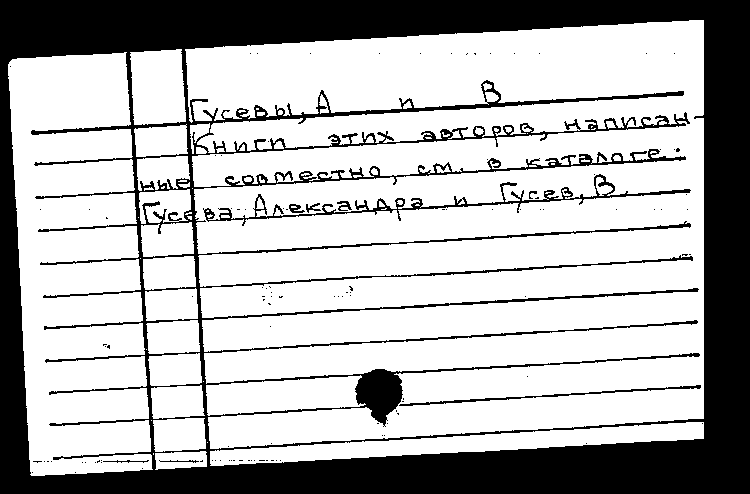 Гусевы, А и В
Книги этих авторов, написан-
ные совместно, см. в каталоге:
Гусева, Александра и Гусев, В.